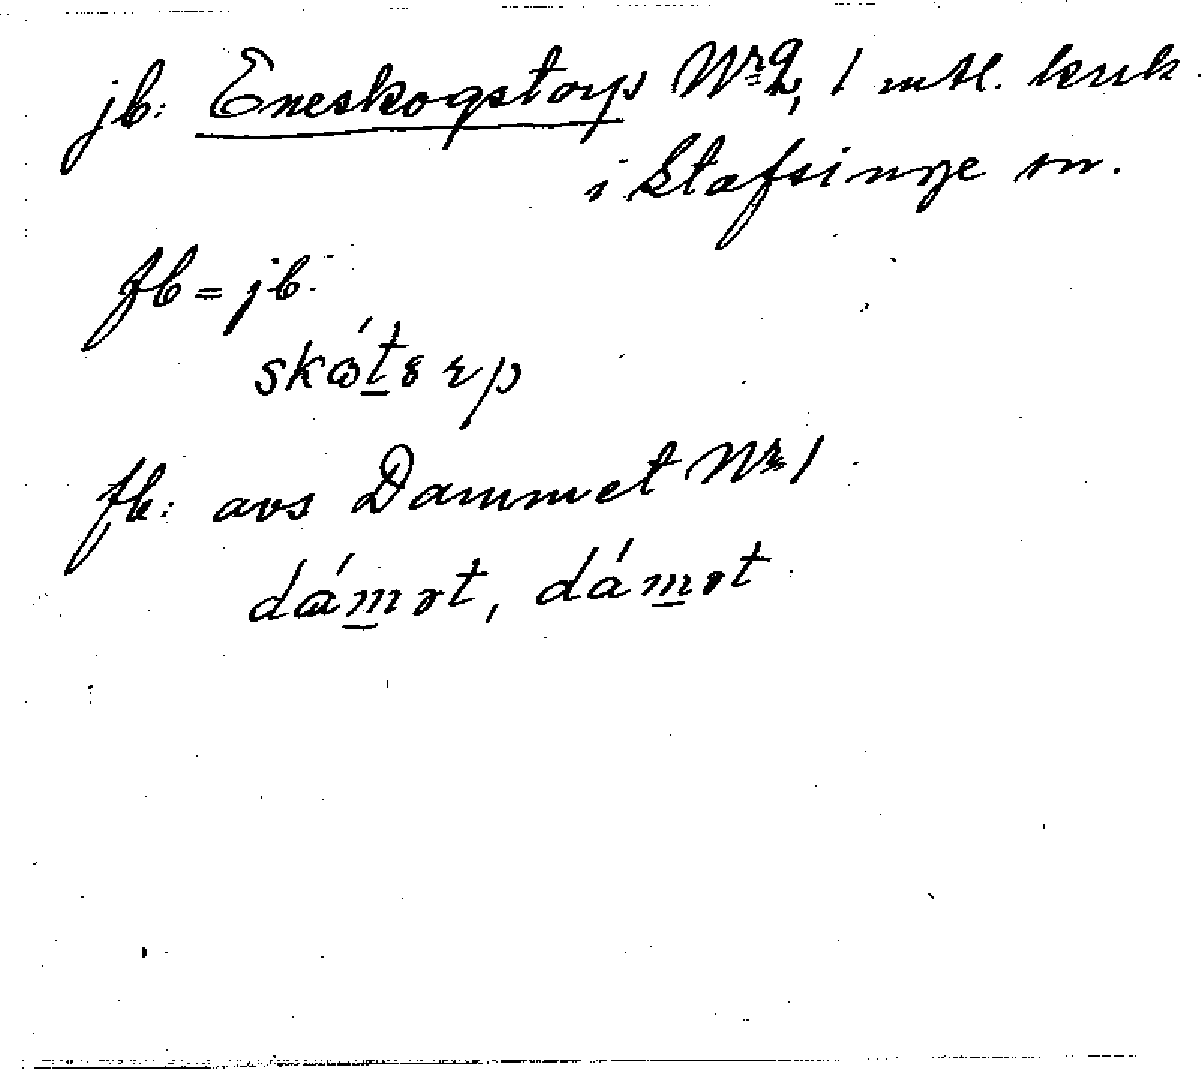 jb: Eneskogstorp Nr 2, 1 mtl. krsk.
i Stafsinge sn.
fb = jb.
fb: avs Dammet Nr 1
dámət, dámət